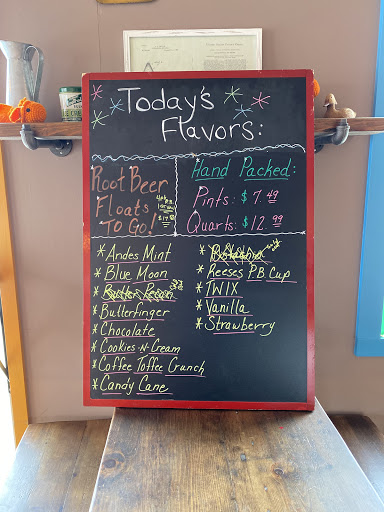 Today's
Flavors:
Root Beer
Floats
To Go!
Hand Packed:
Pints: $7.49
Quarts: $12.99
* Andes Mint
* Blue Moon
* Butter Pecan
* Butterfinger
* Chocolate
* Cookies-N-Cream
* Coffee Toffee Crunch
* Candy Cane
* Pistachio
* Reeses P.B. Cup
* TWIX
* Vanilla
* Strawberry